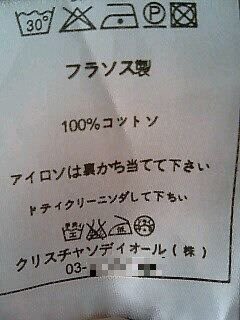 30°
P
フラソス製
100%コットソ
アイロソは裏かち当てて下さい
ドテイクリーニンダして下ちい
クリスチャソディオール(株)
03-